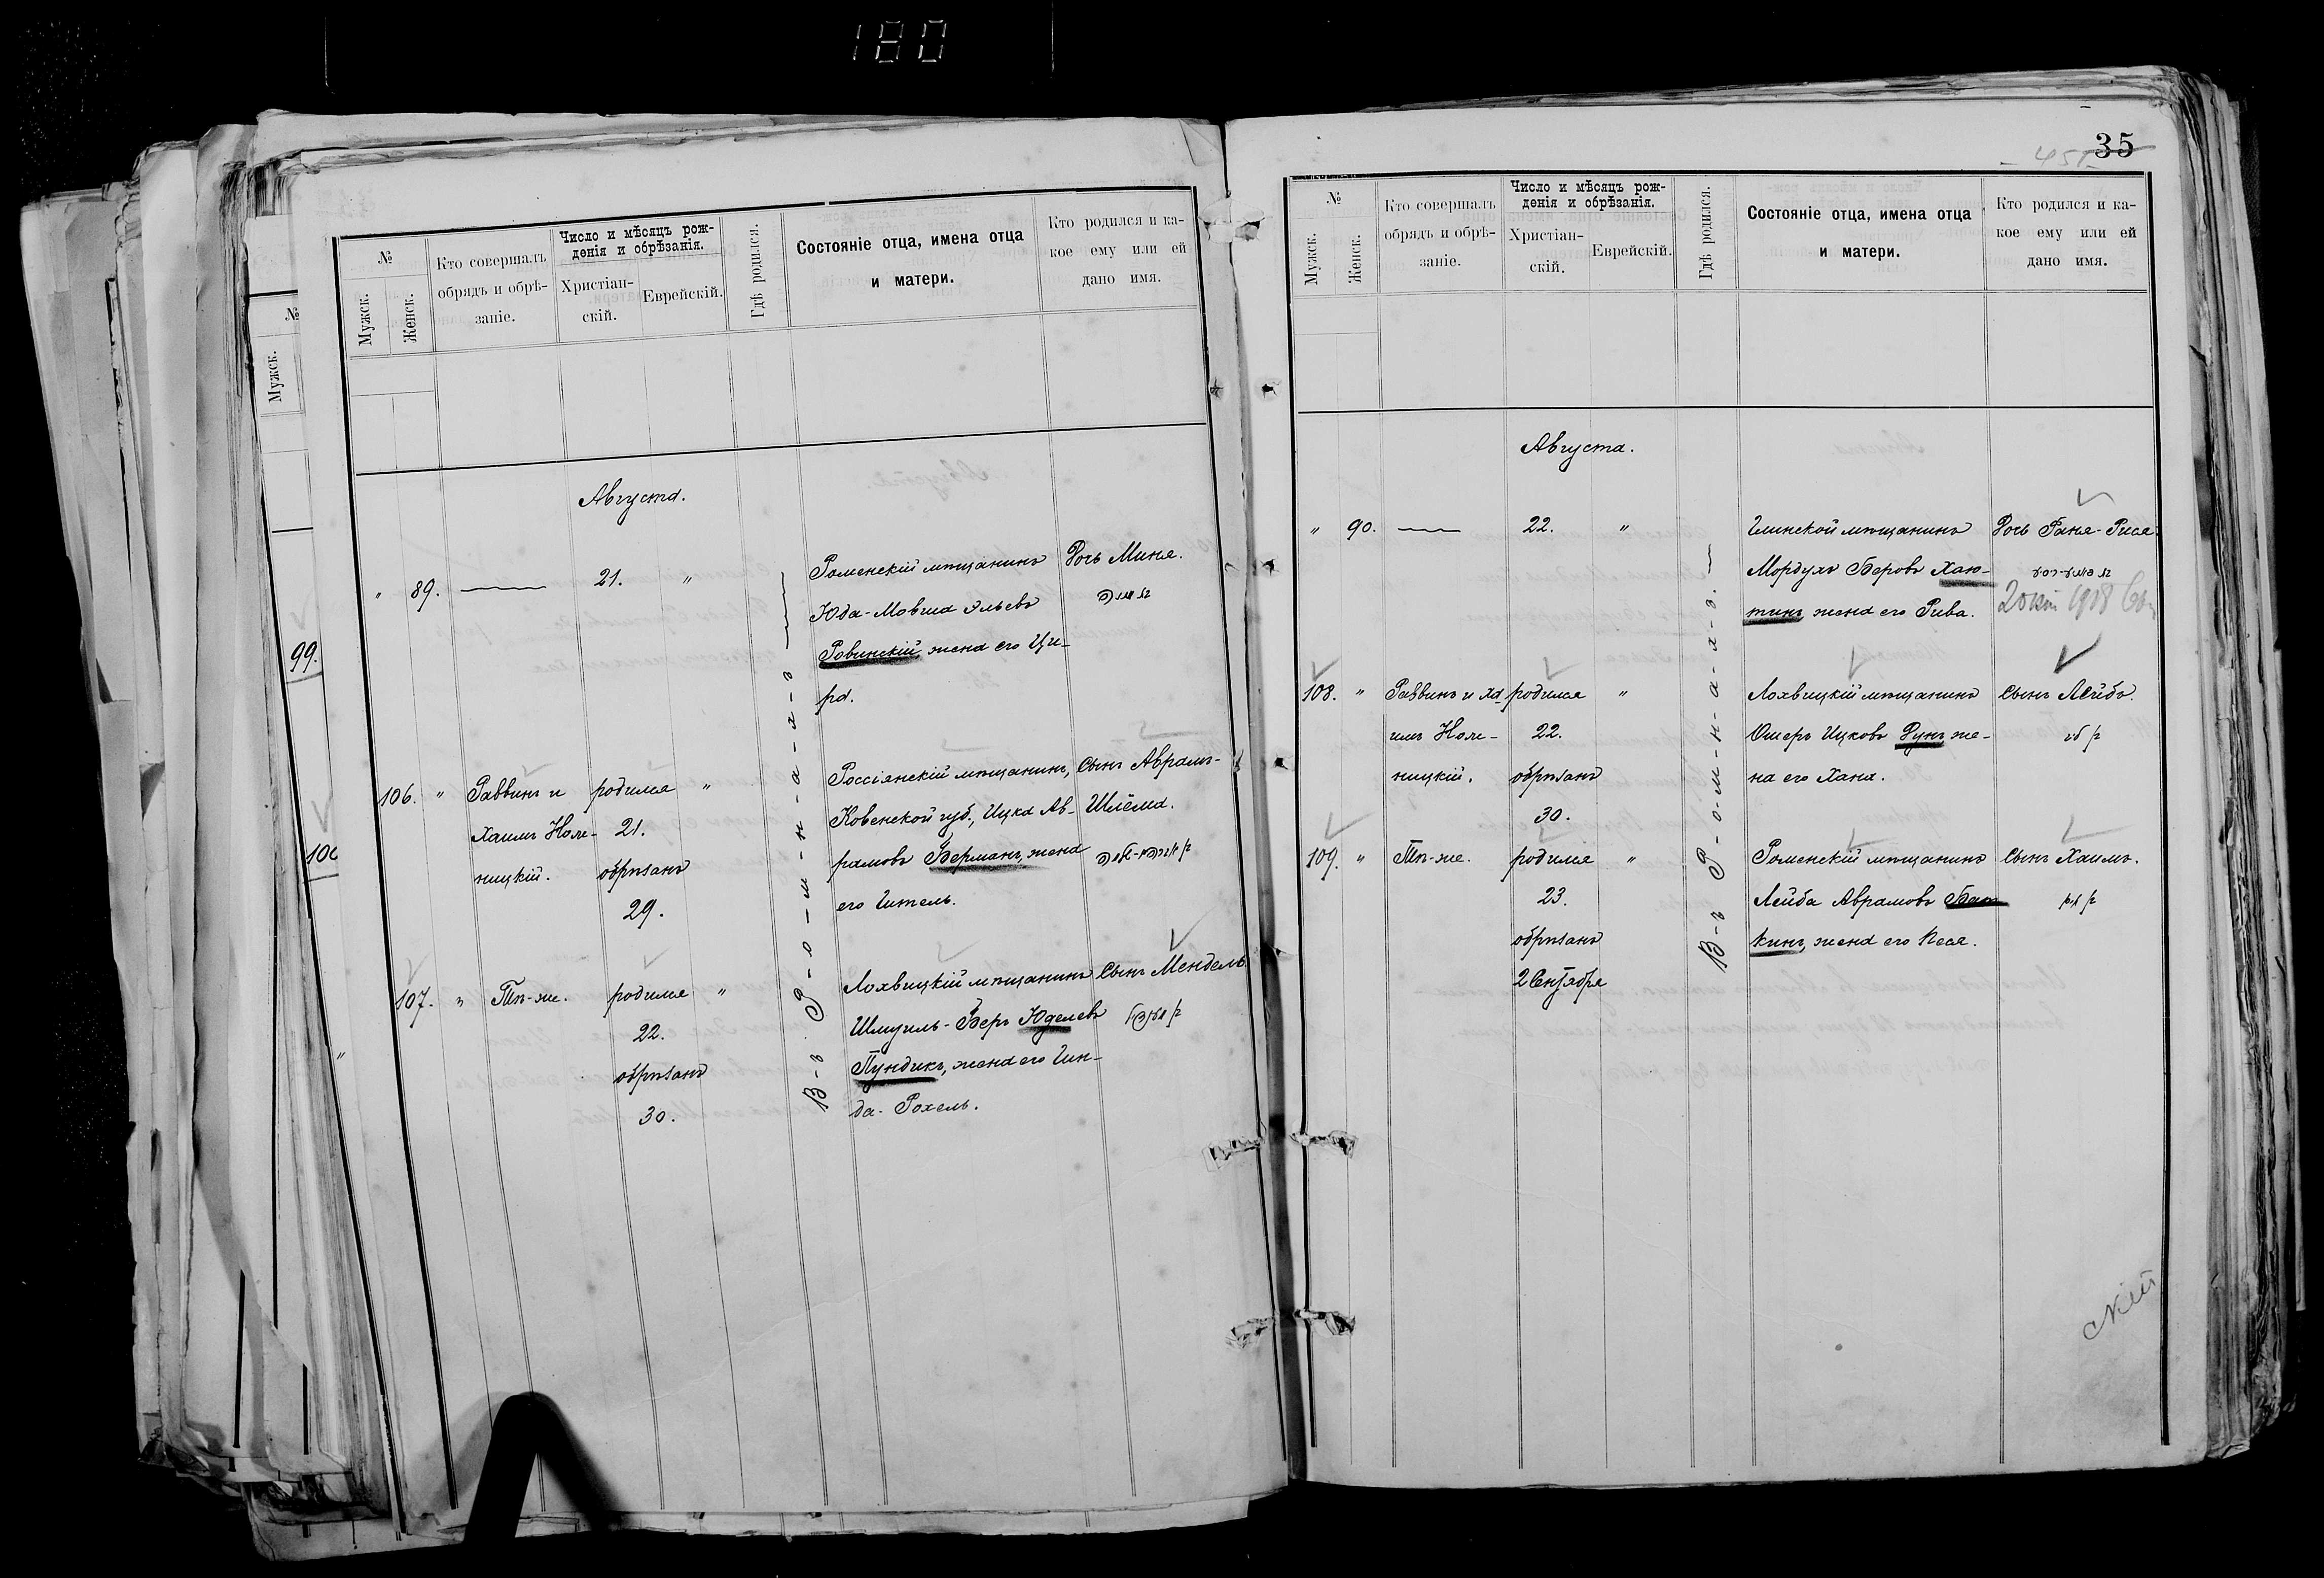 180
№
Мужск.
99.
100
№
Мужск.
Женск.
Кто совершалъ
обрядъ и обрѣ-
заніе.
Число и мѣсяцъ рож-
денія и обрѣзанія.
Христіан-
скій.
Еврейскій.
Гдѣ родился.
Состояніе отца, имена отца
и матери.
Кто родился и ка-
кое ему или ей
дано имя.
Августа.
В-ъ Р-о-м-н-а-х-ъ
" 89. — 21. "
Роменскій мѣщанинъ
Юда-Мовша Эльевъ
Ровинскій, жена его Ци-
ра.
Дочь Минья.
106. "
Раввинъ и
ХаимъНоле-
ницкій.
родился "
21.
обрѣзанъ
29.
Россіянскій мѣщанинъ,
Ковенской губ., Ицка Ав-
рамовъ Берманъ, жена
его Гитель.
Сынъ Абрамъ-
Шлёма.
107. " Тѣ-же.
родился "
22.
обрѣзанъ
30.
Лохвицкій мѣщанинъ
Шмуиль-Беръ Юделевъ
Пундикъ, жена его Гин-
да-Рохель.
Сынъ Мендель.
35
№
Мужск.
Женск.
Кто совершалъ
обрядъ и обрѣ-
заніе.
Число и мѣсяцъ рож-
денія и обрѣзанія.
Христіан-
скій.
Еврейскій.
Гдѣ родился.
Состояніе отца, имена отца
и матери.
Кто родился и ка-
кое ему или ей
дано имя.
Августа.
В-ъ Р-о-м-н-а-х-ъ. —
" 90. — 22. "
Глинской мѣщанинъ
Мордухъ Беровъ Хаю-
тинъ, жена его Рива.
Дочь Фанья-Рися.
1908
108. "
Раввинъ и Ха-
имъ Ноле-
ницкій.
родился "
22.
обрѣзанъ
30.
Лохвицкій мѣщанинъ
Ошеръ Ицковъ Дунъ же-
на его Хана.
Сынъ Лейбъ.
109. " Тѣ-же.
родился "
23.
обрѣзанъ
2 Сентября
Роменскій мѣщанинъ
Лейба Аврамовъ
кинъ, жена его Песя.
Сынъ Хаимъ.